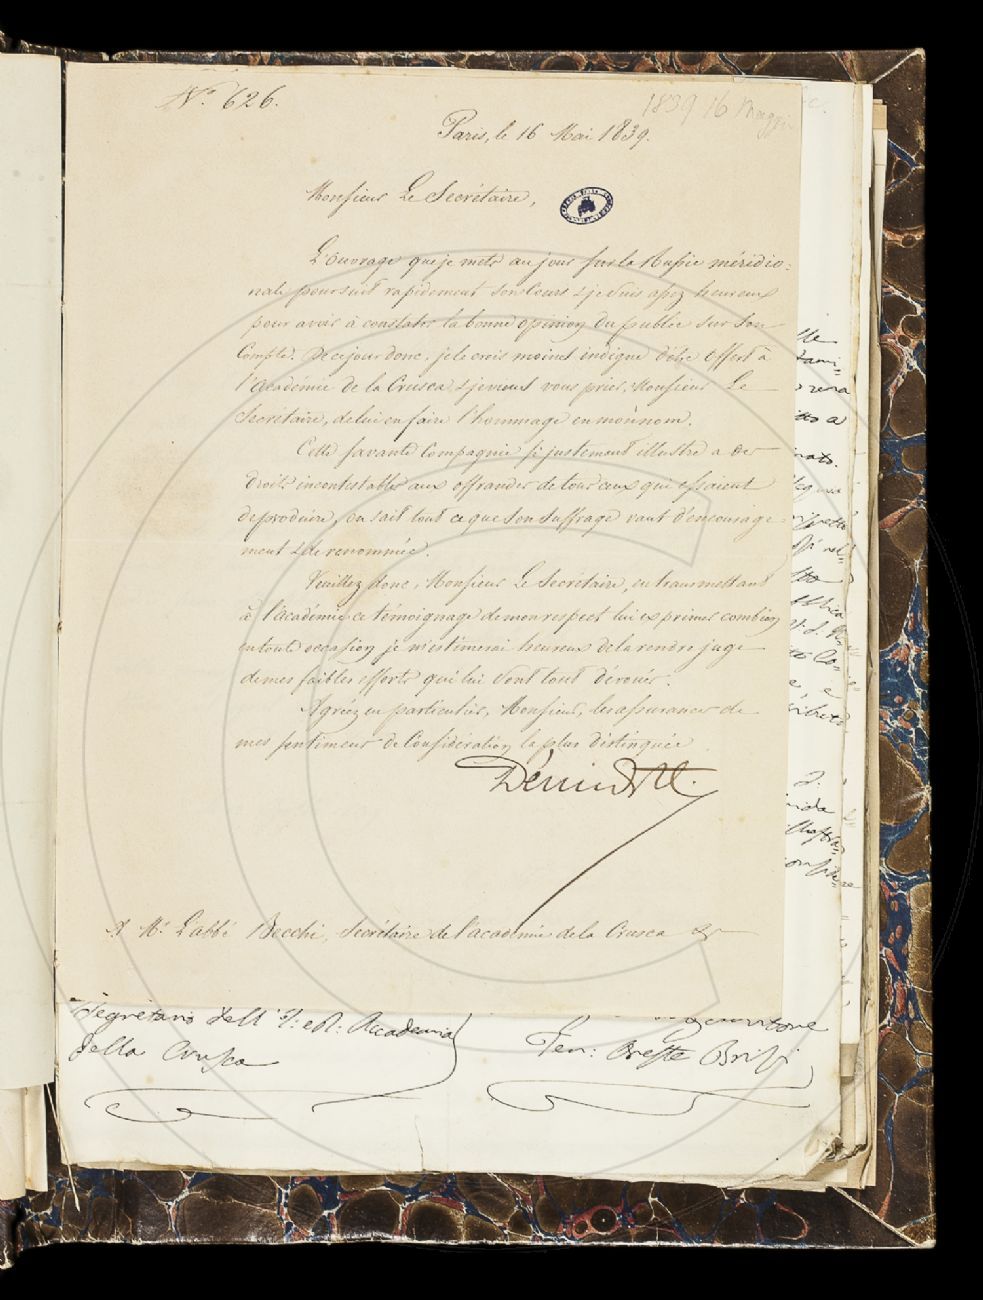 N.º 626.
1839 16 Maggio
Paris, le 16 Mai 1839.
Monsieur Le Secrétaire,
L'Ouvrage que je mets au jour sur la Russie méridio=
nale poursuit rapidement son Cours & je suis assez heureux
pour avoir à constater la bonne opinion du public sur son
Compte. De ce jour donc, je le crois moins indigne d'être Offert à
l'Académie de la Crusca & je viens vous prier, Monsieur Le
Secrétaire, de lui en faire l'hommage en mon nom.
Cette savante Compagnie si justement illustre a des
droits incontestables aux offrandes de tous ceux qui essaient
de produire, on sait tout ce que son suffrage vaut d'encourage=
ment & de renommée.
Veuillez donc, Monsieur Le Secrétaire, en transmettant
à l'académie ce témoignage de mon respect lui exprimer combien
en toute occasion je m'estimerai heureux de la rendre juge
de mes faibles efforts qui lui sont tout dévoués.
Agréez en particulier, Monsieur, les assurances de
mes sentimens de Considération la plus distinguée
Démidoff.
A Mr. L'abbé Becchi, Secrétaire de l'académie de la Crusca &
Segretario dell' I: e R: Accademia
della Crusca
Ten: Oreste Brizi